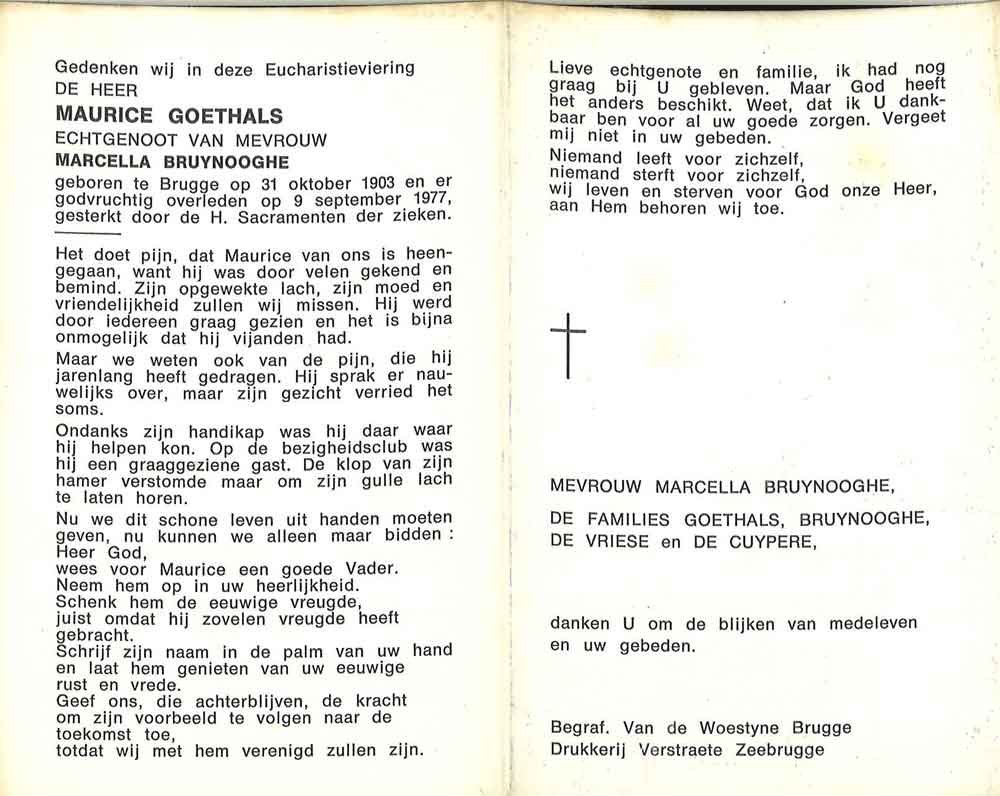 Gedenken wij in deze Eucharistieviering
DE HEER
MAURICE GOETHALS
ECHTGENOOT VAN MEVROUW
MARCELLA BRUYNOOGHE
geboren te Brugge op 31 oktober 1903 en er
godvruchtig overleden op 9 september 1977,
gesterkt door de H. Sacramenten der zieken.
Het doet pijn, dat Maurice van ons is heen-
gegaan, want hij was door velen gekend en
bemind. Zijn opgewekte lach, zijn moed en
vriendelijkheid zullen wij missen. Hij werd
door iedereen graag gezien en het is bijna
onmogelijk dat hij vijanden had.
Maar we weten ook van de pijn, die hij
jarenlang heeft gedragen. Hij sprak er nau-
welijks over, maar zijn gezicht verried het
soms.
Ondanks zijn handikap was hij daar waar
hij helpen kon. Op de bezigheidsclub was
hij een graaggeziene gast. De klop van zijn
hamer verstomde maar om zijn gulle lach
te laten horen.
Nu we dit schone leven uit handen moeten
geven, nu kunnen we alleen maar bidden :
Heer God,
wees voor Maurice een goede Vader.
Neem hem op in uw heerlijkheid.
Schenk hem de eeuwige vreugde,
juist omdat hij zovelen vreugde heeft
gebracht.
Schrijf zijn naam in de palm van uw hand
en laat hem genieten van uw eeuwige
rust en vrede.
Geef ons, die achterblijven, de kracht
om zijn voorbeeld te volgen naar de
toekomst toe,
totdat wij met hem verenigd zullen zijn.
Lieve echtgenote en familie, ik had nog
graag bij U gebleven. Maar God heeft
het anders beschikt. Weet, dat ik U dank-
baar ben voor al uw goede zorgen. Vergeet
mij niet in uw gebeden.
Niemand leeft voor zichzelf,
niemand sterft voor zichzelf,
wij leven en sterven voor God onze Heer,
aan Hem behoren wij toe.
MEVROUW MARCELLA BRUYNOOGHE,
DE FAMILIES GOETHALS, BRUYNOOGHE,
DE VRIESE en DE CUYPERE,
danken U om de blijken van medeleven
en uw gebeden.
Begraf. Van de Woestyne Brugge
Drukkerij Verstraete Zeebrugge